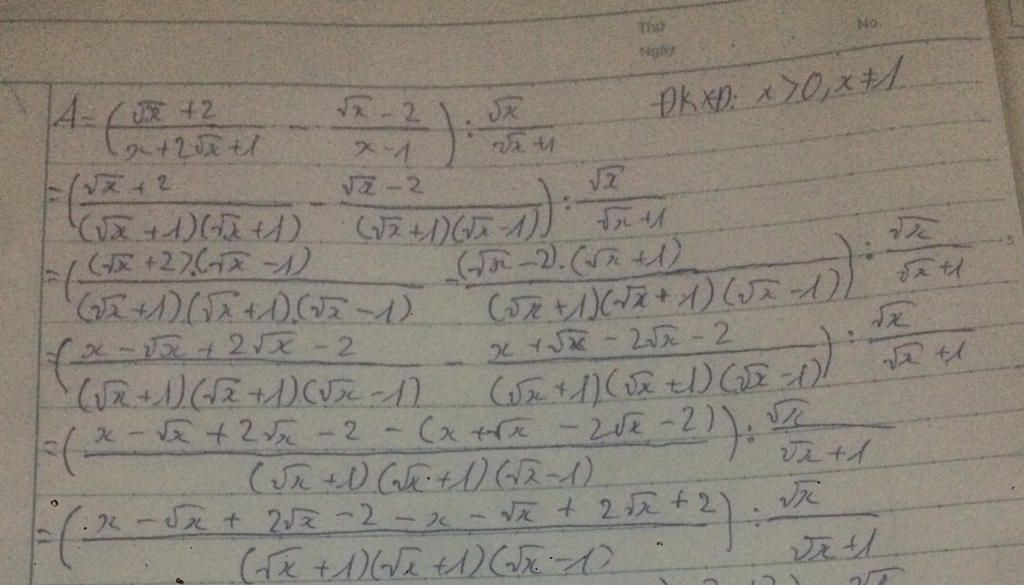 Thứ
No.
Ngày
ĐKXĐ: x>0, x≠1
A = ( (√x + 2)/(x + 2√x + 1) − (√x − 2)/(x − 1) ) : √x/(√x + 1)
= ( (√x + 2)/((√x + 1)(√x + 1)) − (√x − 2)/((√x + 1)(√x − 1)) ) : √x/(√x + 1)
= ( ((√x + 2).(√x − 1))/((√x + 1)(√x + 1).(√x − 1)) − ((√x − 2).(√x + 1))/((√x + 1)(√x + 1)(√x − 1)) ) : √x/(√x + 1)
= ( (x − √x + 2√x − 2)/((√x + 1)(√x + 1)(√x − 1)) − (x + √x − 2√x − 2)/((√x + 1)(√x + 1)(√x − 1)) ) : √x/(√x + 1)
= ( (x − √x + 2√x − 2 − (x + √x − 2√x − 2))/((√x + 1)(√x + 1)(√x − 1)) ) : √x/(√x + 1)
= ( (x − √x + 2√x − 2 − x − √x + 2√x + 2)/((√x + 1)(√x + 1)(√x − 1)) ) : √x/(√x + 1)